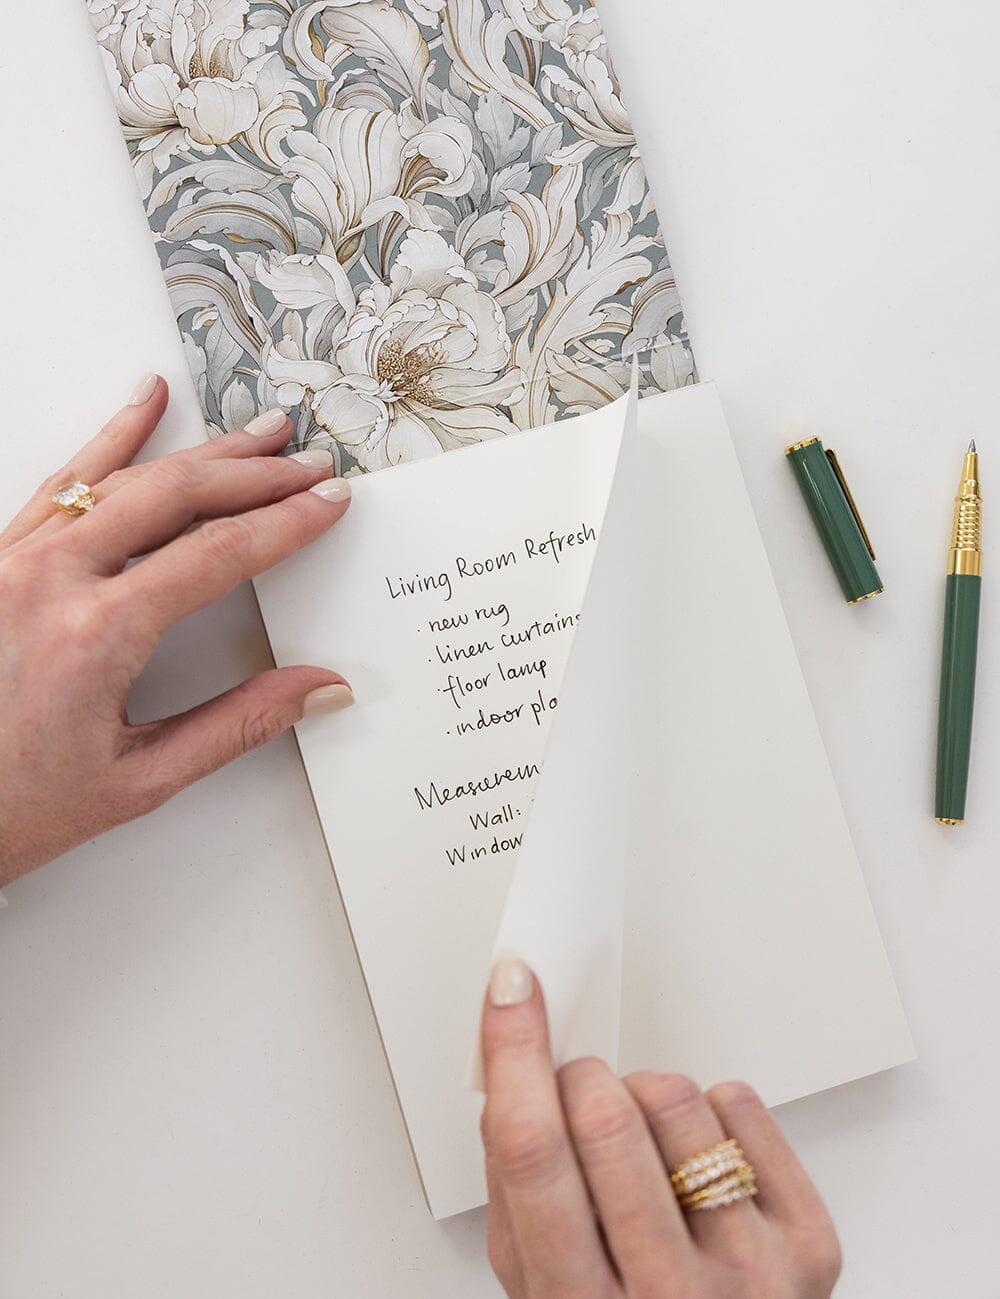 Living Room Refresh
· new rug
· linen curtains
· floor lamp
· indoor pla
Measurem
Wall:
Window